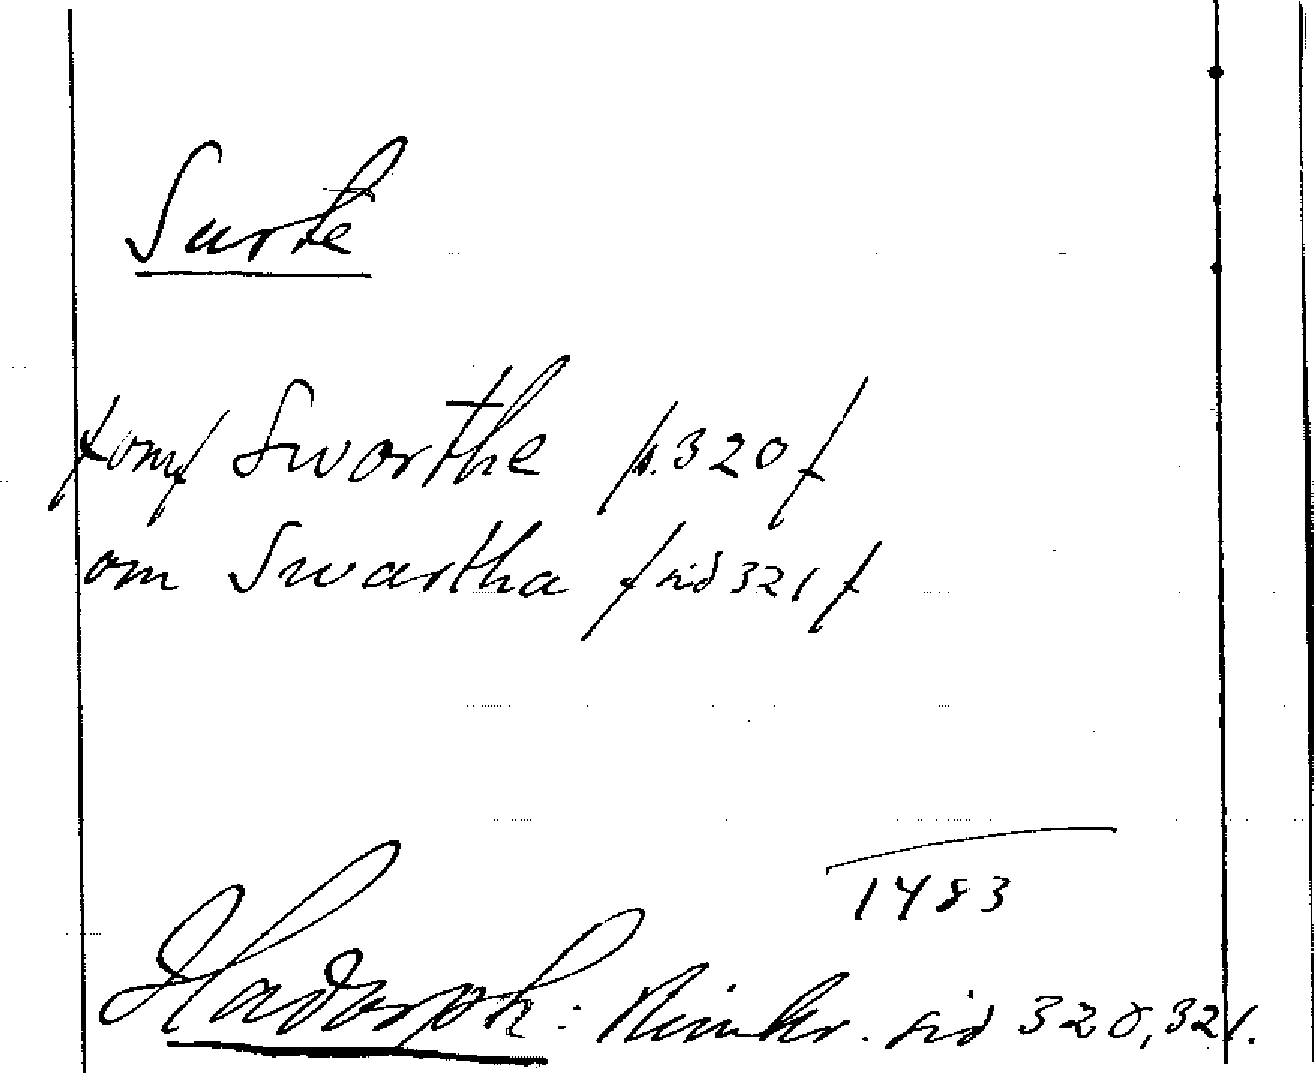 Surte
konf Swarthe p. 320 f
om Swartha f sid 321 f
1483
Hadorph: Rimkr. sid 320, 321.